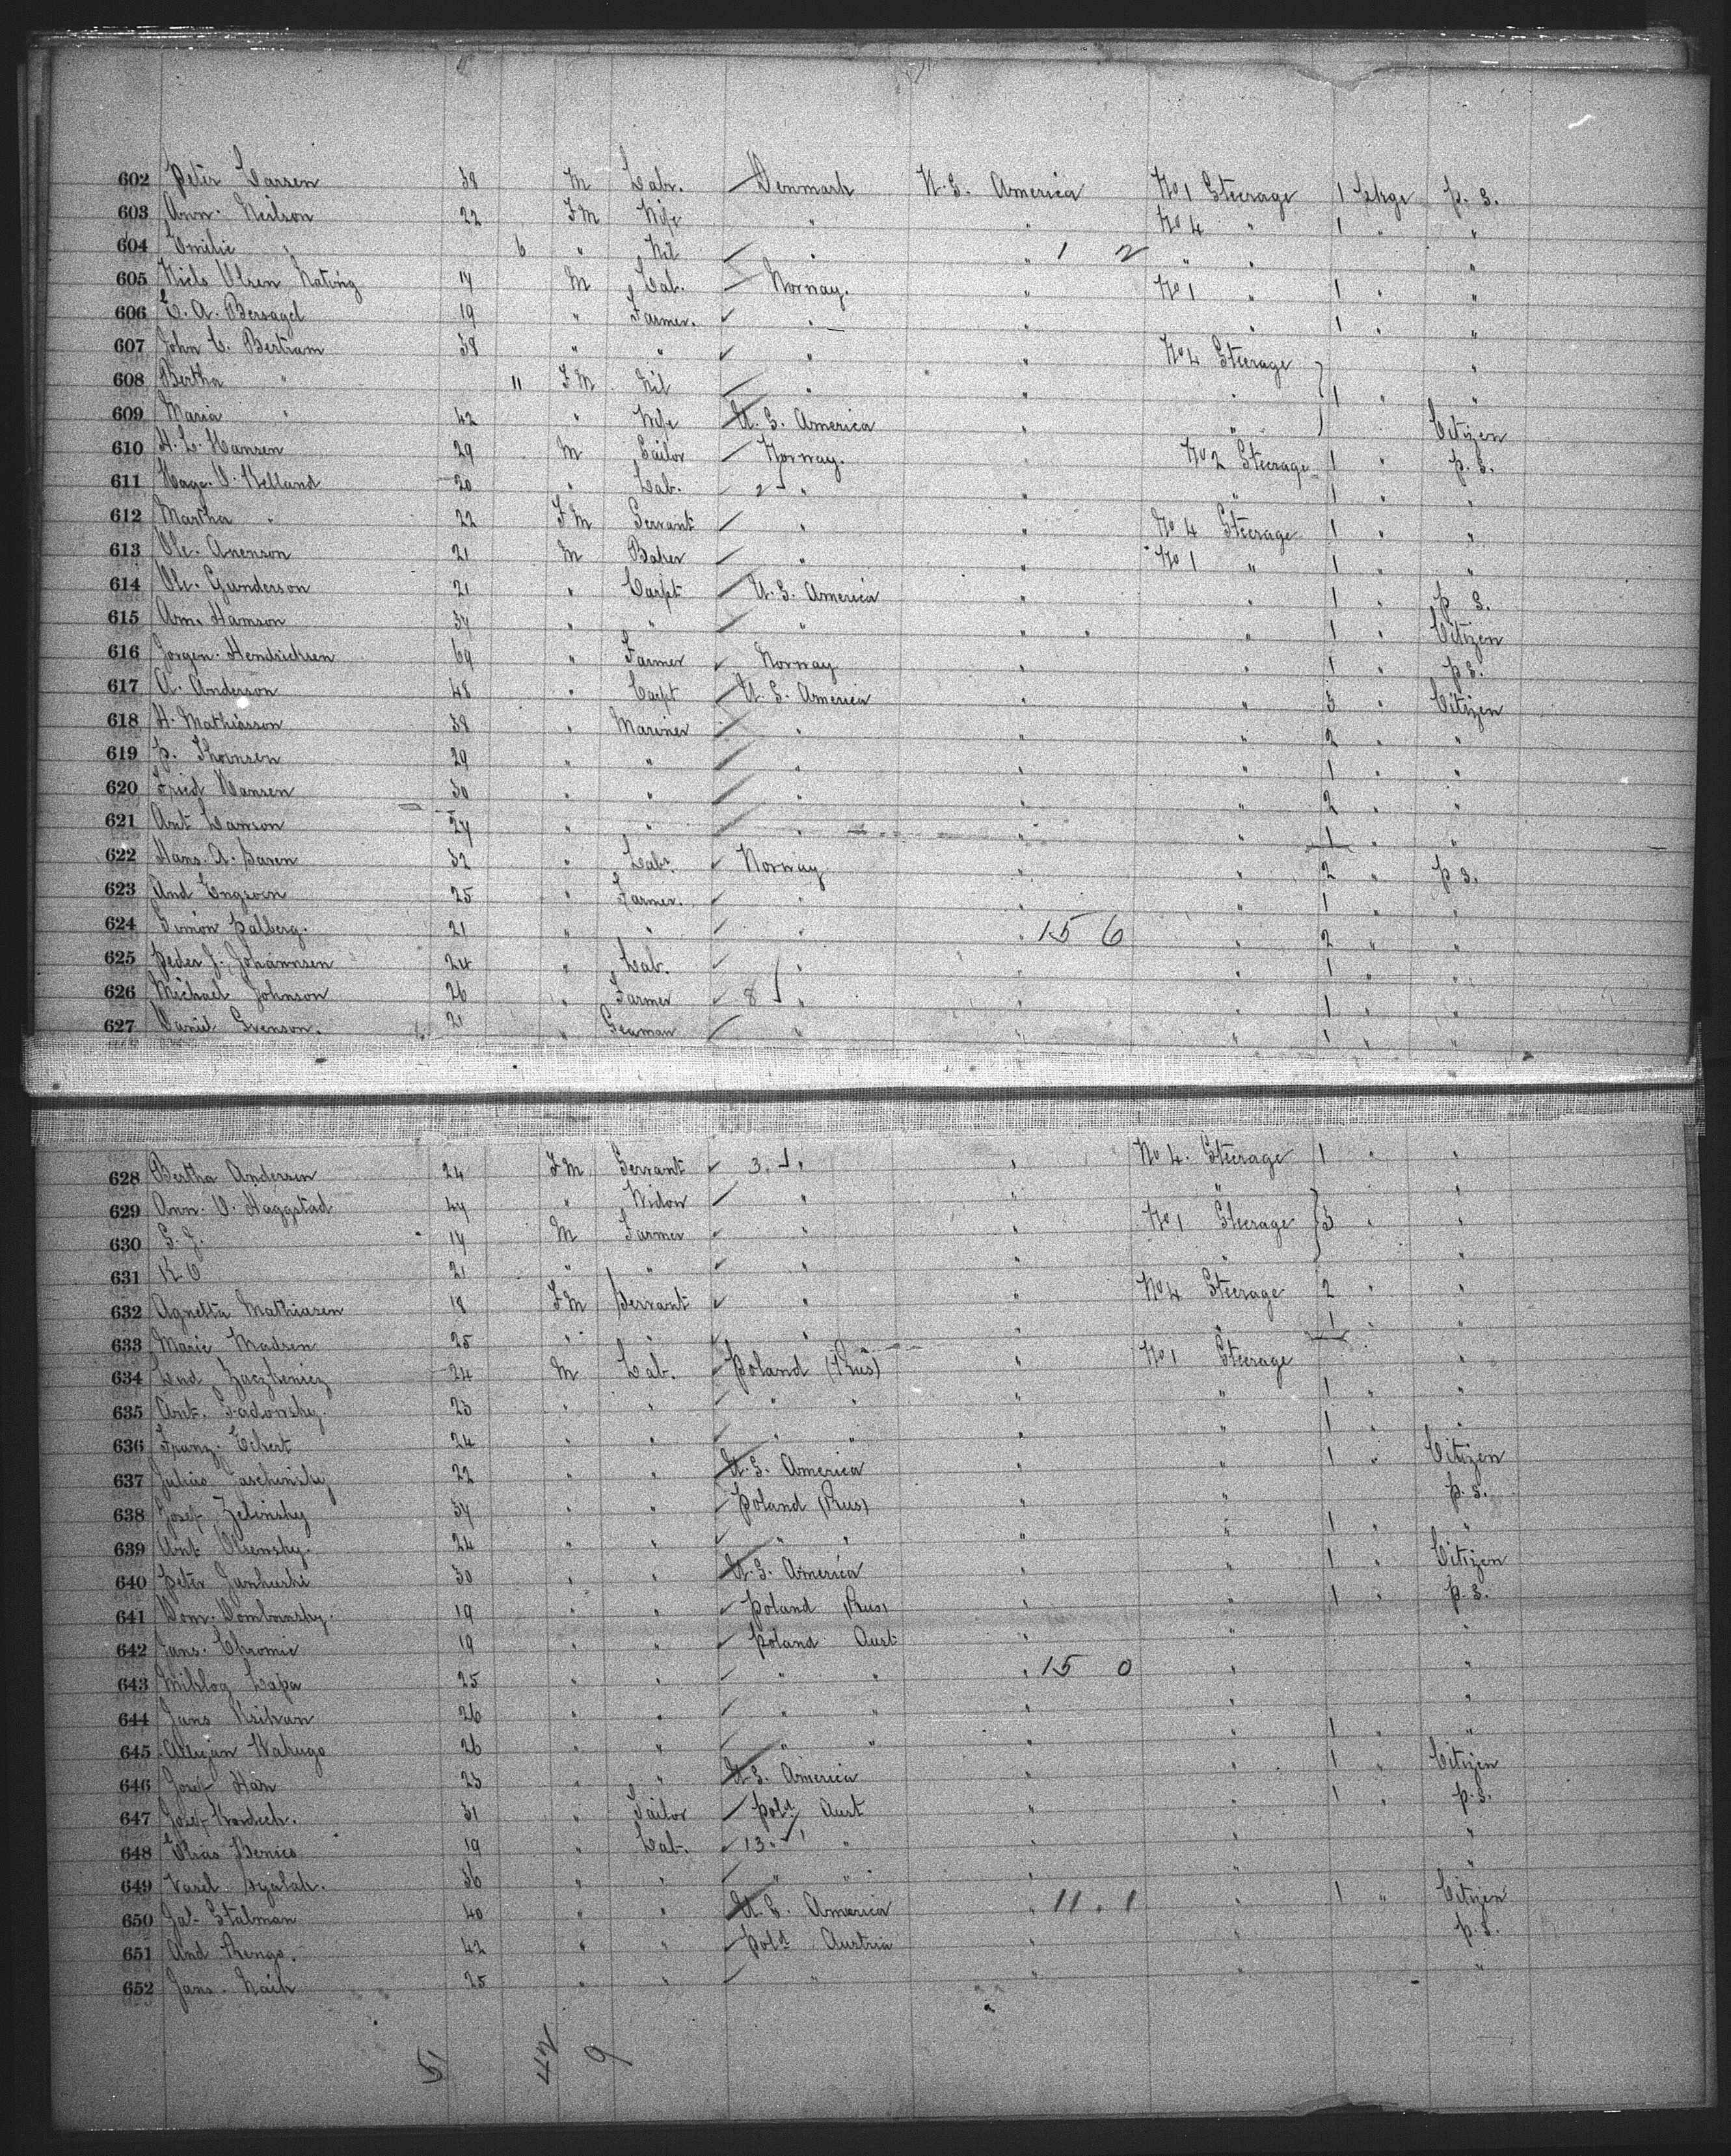 602 Peter Larsen 38 M Labr. Denmark U.S. America No 1 Steerage 1 pkge P.S.
603 Ann. Neilson 22 FM Wife " " No 4 " 1 " "
604 Emilie " 6 " Nil " " 1 2 " " "
605 Niels Olsen 17 M Lab. Norway. " No 1 " 1 " "
606 E. A. Bersagel 19 " Farmer. " " " 1 " "
607 John C. Bertram 38 " " " " No 4 Steerage "
608 Bertha " 11 FM Nil " " " 1 " "
609 Maria " 42 " Wife U.S. America " " Citizen
610 H. L. Hansen 29 M Sailor Norway. " No 2 Steerage 1 " P.S.
611 Hage. O. Helland 20 " Lab. 2 " " " 1 " "
612 Martha " 22 FM Servant " " No 4 Steerage 1 " "
613 Ole. Anenson 21 M Baker " " No 1 " 1 " "
614 Ole. Gunderson 21 " Carpt U.S. America " " 1 " P S.
615 Am. Hamson 34 " " " " " 1 " Citizen
616 Jorgen. Hendricksen 69 " Farmer Norway " " 1 " P.S.
617 A. Anderson 48 " Carpt U.S. America " " 3 " Citizen
618 H. Mathiasson 38 " Mariner " " " 2 " "
619 P. Thomsen 29 " " " " " 1 " "
620 Fried Hansen 30 " " " " " 2 " "
621 Ant Lamson 27 " " " " " 1 " "
622 Hans. A. 32 " Labr. Norway " " 2 " P S.
623 And Engsoen 25 " Farmer. " " " 1 " "
624 Simon Palberg. 21 " " " " 15 6 " 2 " "
625 Peder J. Johannsen 24 " Lab. " " " 1 " "
626 Michael Johnson 26 " Farmer 8 " " " 1 " "
627 Daniel Svenson. 21 " Seaman " " " 1 " "
628 Bertha Andersen 24 FM Servant 3. " " No 4. Steerage 1 " "
629 Ann. O. Haggstad 47 " Widow " " " "
630 S. J. 17 M Farmer " " No 1 Steerage 3 " "
631 K. O 21 " " " " " "
632 Agnetta Mathiasen 18 FM Servant " " No 4 Steerage 2 " "
633 Marie Madsen 25 " " " " " 1 " "
634 Lud 24 M Lab. Poland (Rus) " No 1 Steerage "
635 Ant. Sadowsky. 23 " " " " " " 1 " "
636 Franz. Eckert 24 " " " " " " 1 " "
637 Julius Jaschinsky 22 " " U.S. America " " 1 " Citizen
638 Josef Zelinsky 34 " " Poland (Rus) " " P.S.
639 Ant Olsensky. 24 " " " " " " 1 " "
640 Peter 30 " " U.S. America " " 1 " Citizen
641 Dom. Dombansky. 19 " " Poland (Rus) " " 1 " P.S.
642 Jans. Chromie 19 " " Poland Aust " " "
643 Lapa 25 " " " " " 15 0 " "
644 Jans 26 " " " " " " "
645 26 " " " " " " 1 " "
646 Josef Han 23 " " U.S. America " " 1 " Citizen
647 Josef Kordech. 31 " Tailor Pold. Aust " " 1 " P.S.
648 Elias Benics 19 " Lab. 13. " " " "
649 Vasil 36 " " " " " " "
650 Jak Stalman 40 " " U.S. America " 11.1 " 1 " Citizen
651 And 42 " " Pold. Austria " " P.S.
652 Jans. 25 " " " " " "